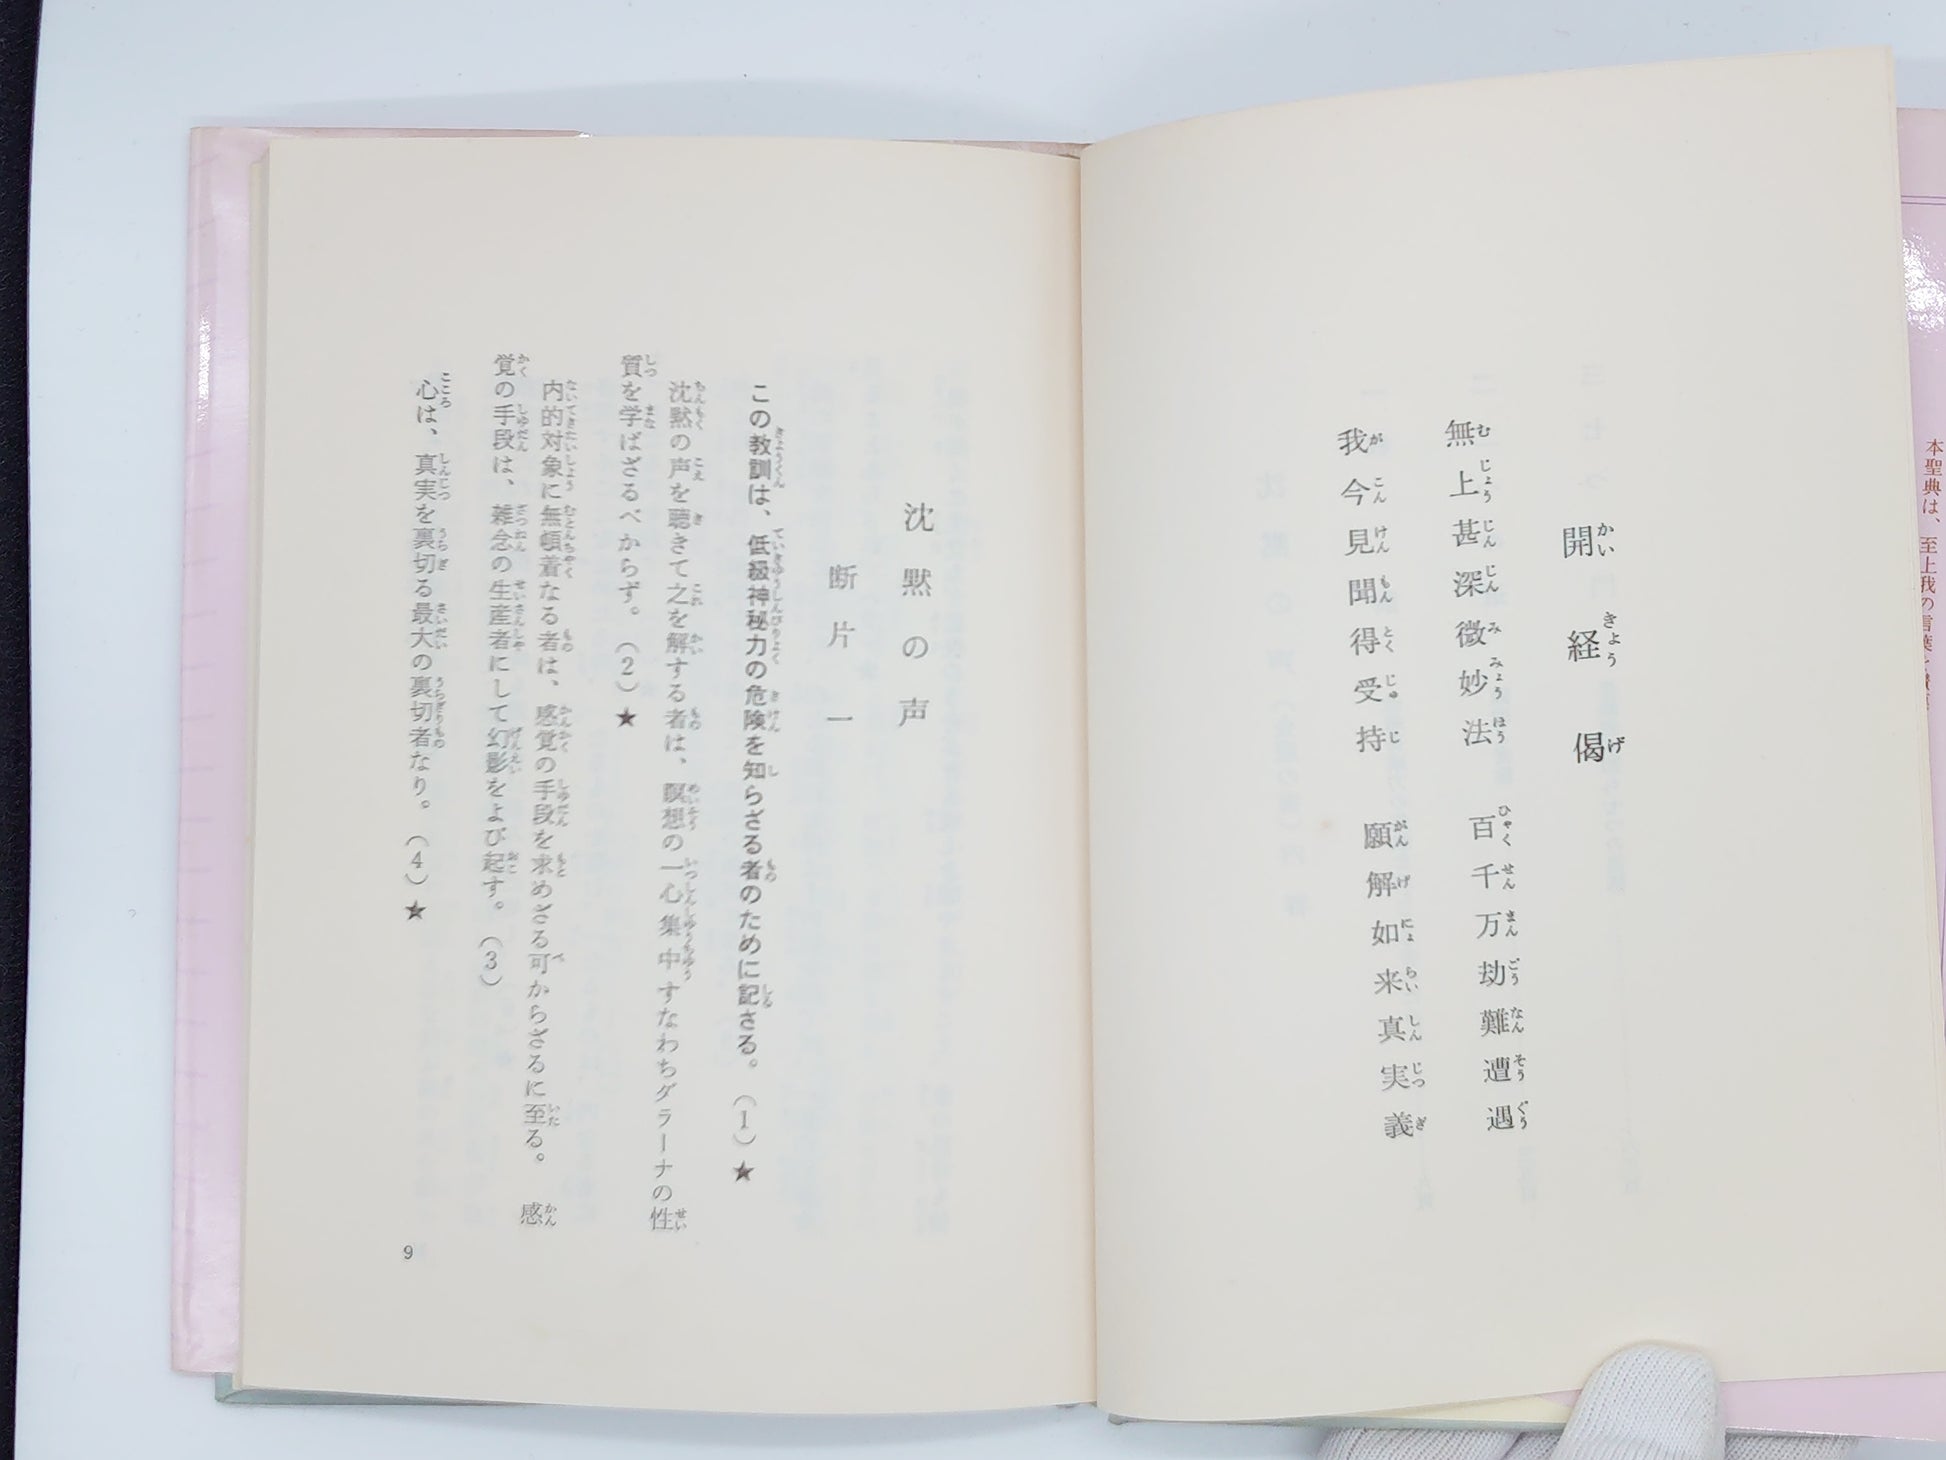 本聖典は、至上我の言葉と
開経偈
無上甚深微妙法 百千万劫難遭遇
我今見聞得受持 願解如来真実義
沈黙の声
断片一
この教訓は、低級神秘力の危険を知らざる者のために記さる。(1)★
沈黙の声を聴きて之を解する者は、瞑想の一心集中すなわちダラーナの性
質を学ばざるべからず。(2)★
内的対象に無頓着なる者は、感覚の手段を求めざる可からざるに至る。 感
覚の手段は、雑念の生産者にして幻影をよび起す。(3)
心は、真実を裏切る最大の裏切者なり。(4)★
9